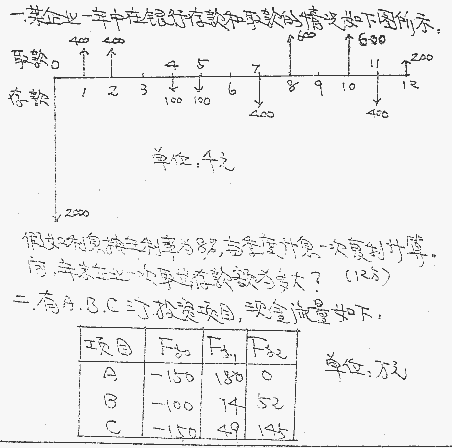 一.某企业一年中在银行存款和取款的情况如下图所示。
400 400 600 600 200
取款 0 4 5 7 11
存款 1 2 3 100 100 6 8 9 10 12
400 400
单位:千元
2000
假如利息按年利率为8%,每季度计息一次复利计算。
问,年末企业一次取出存款额为多大? (12分)
二.有A.B.C三个投资项目,现金流量如下:
项目 F₀ F₁ F₂ 单位:万元
A -150 180 0
B -100 74 52
C -150 49 145